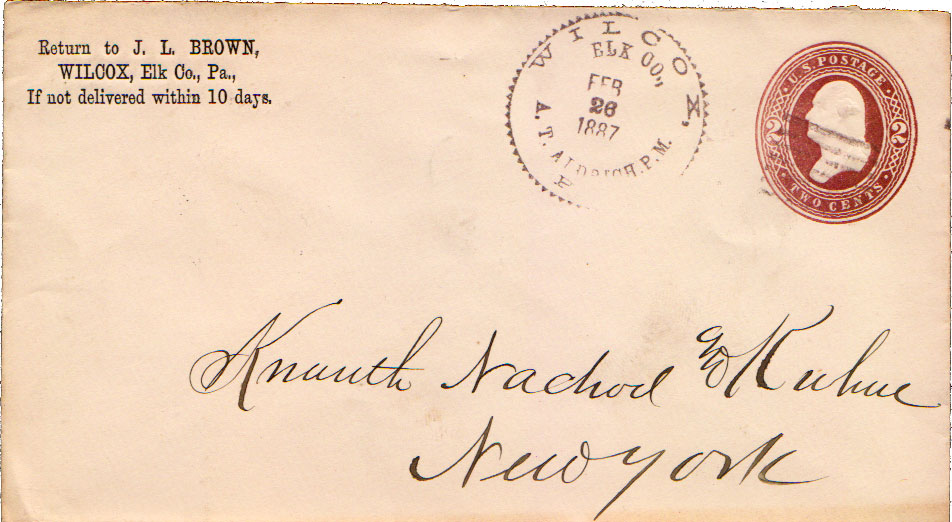 Return to J. L. BROWN,
WILCOX, Elk Co., Pa.,
If not delivered within 10 days.
WILCOX,
ELK CO.,
FEB
26
1887
A. T. ALDRICH, P.M.
U.S. POSTAGE
2 2
TWO CENTS
Knauth Nachod & Kuhne
New York